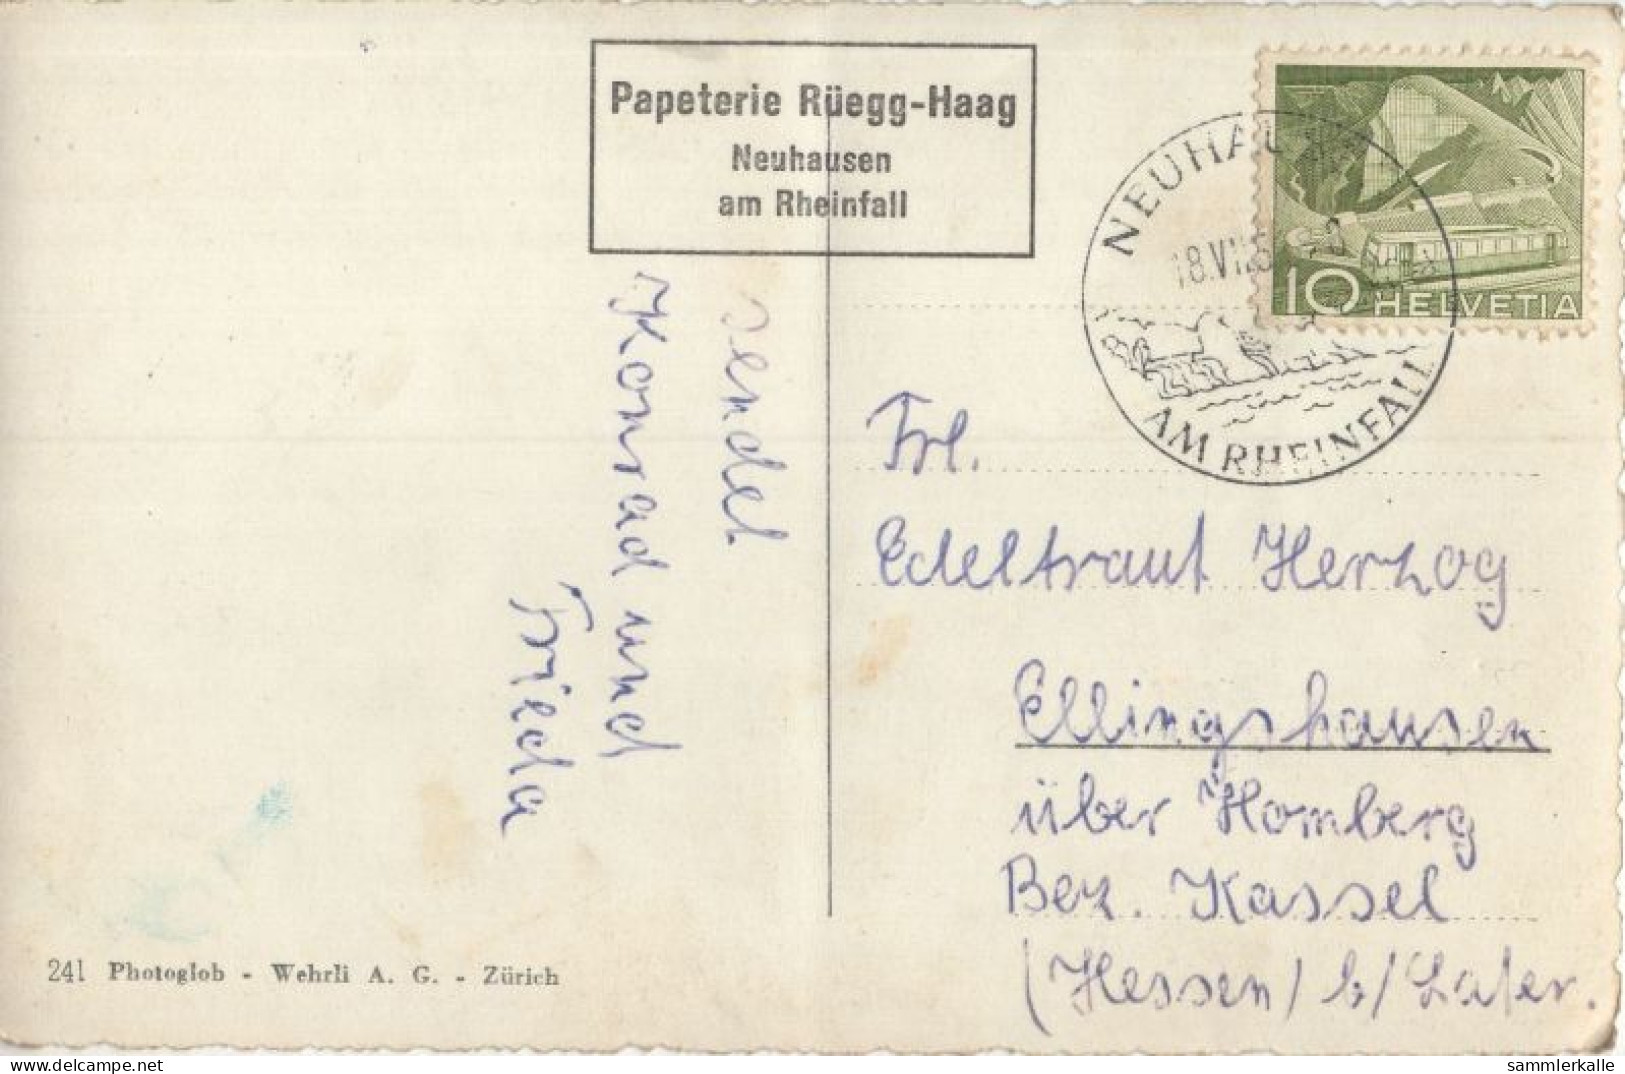 Papeterie Rüegg-Haag
Neuhausen
am Rheinfall
NEUHAUSEN
18.VII.5
AM RHEINFALL
10 HELVETIA
sendet
Konrad und
Frieda
Frl.
Edeltraut Herzog
Ellingshausen
über Homberg
Bez. Kassel
(Hessen) b/
241 Photoglob - Wehrli A. G. - Zürich
delcampe.net
sammlerkalle